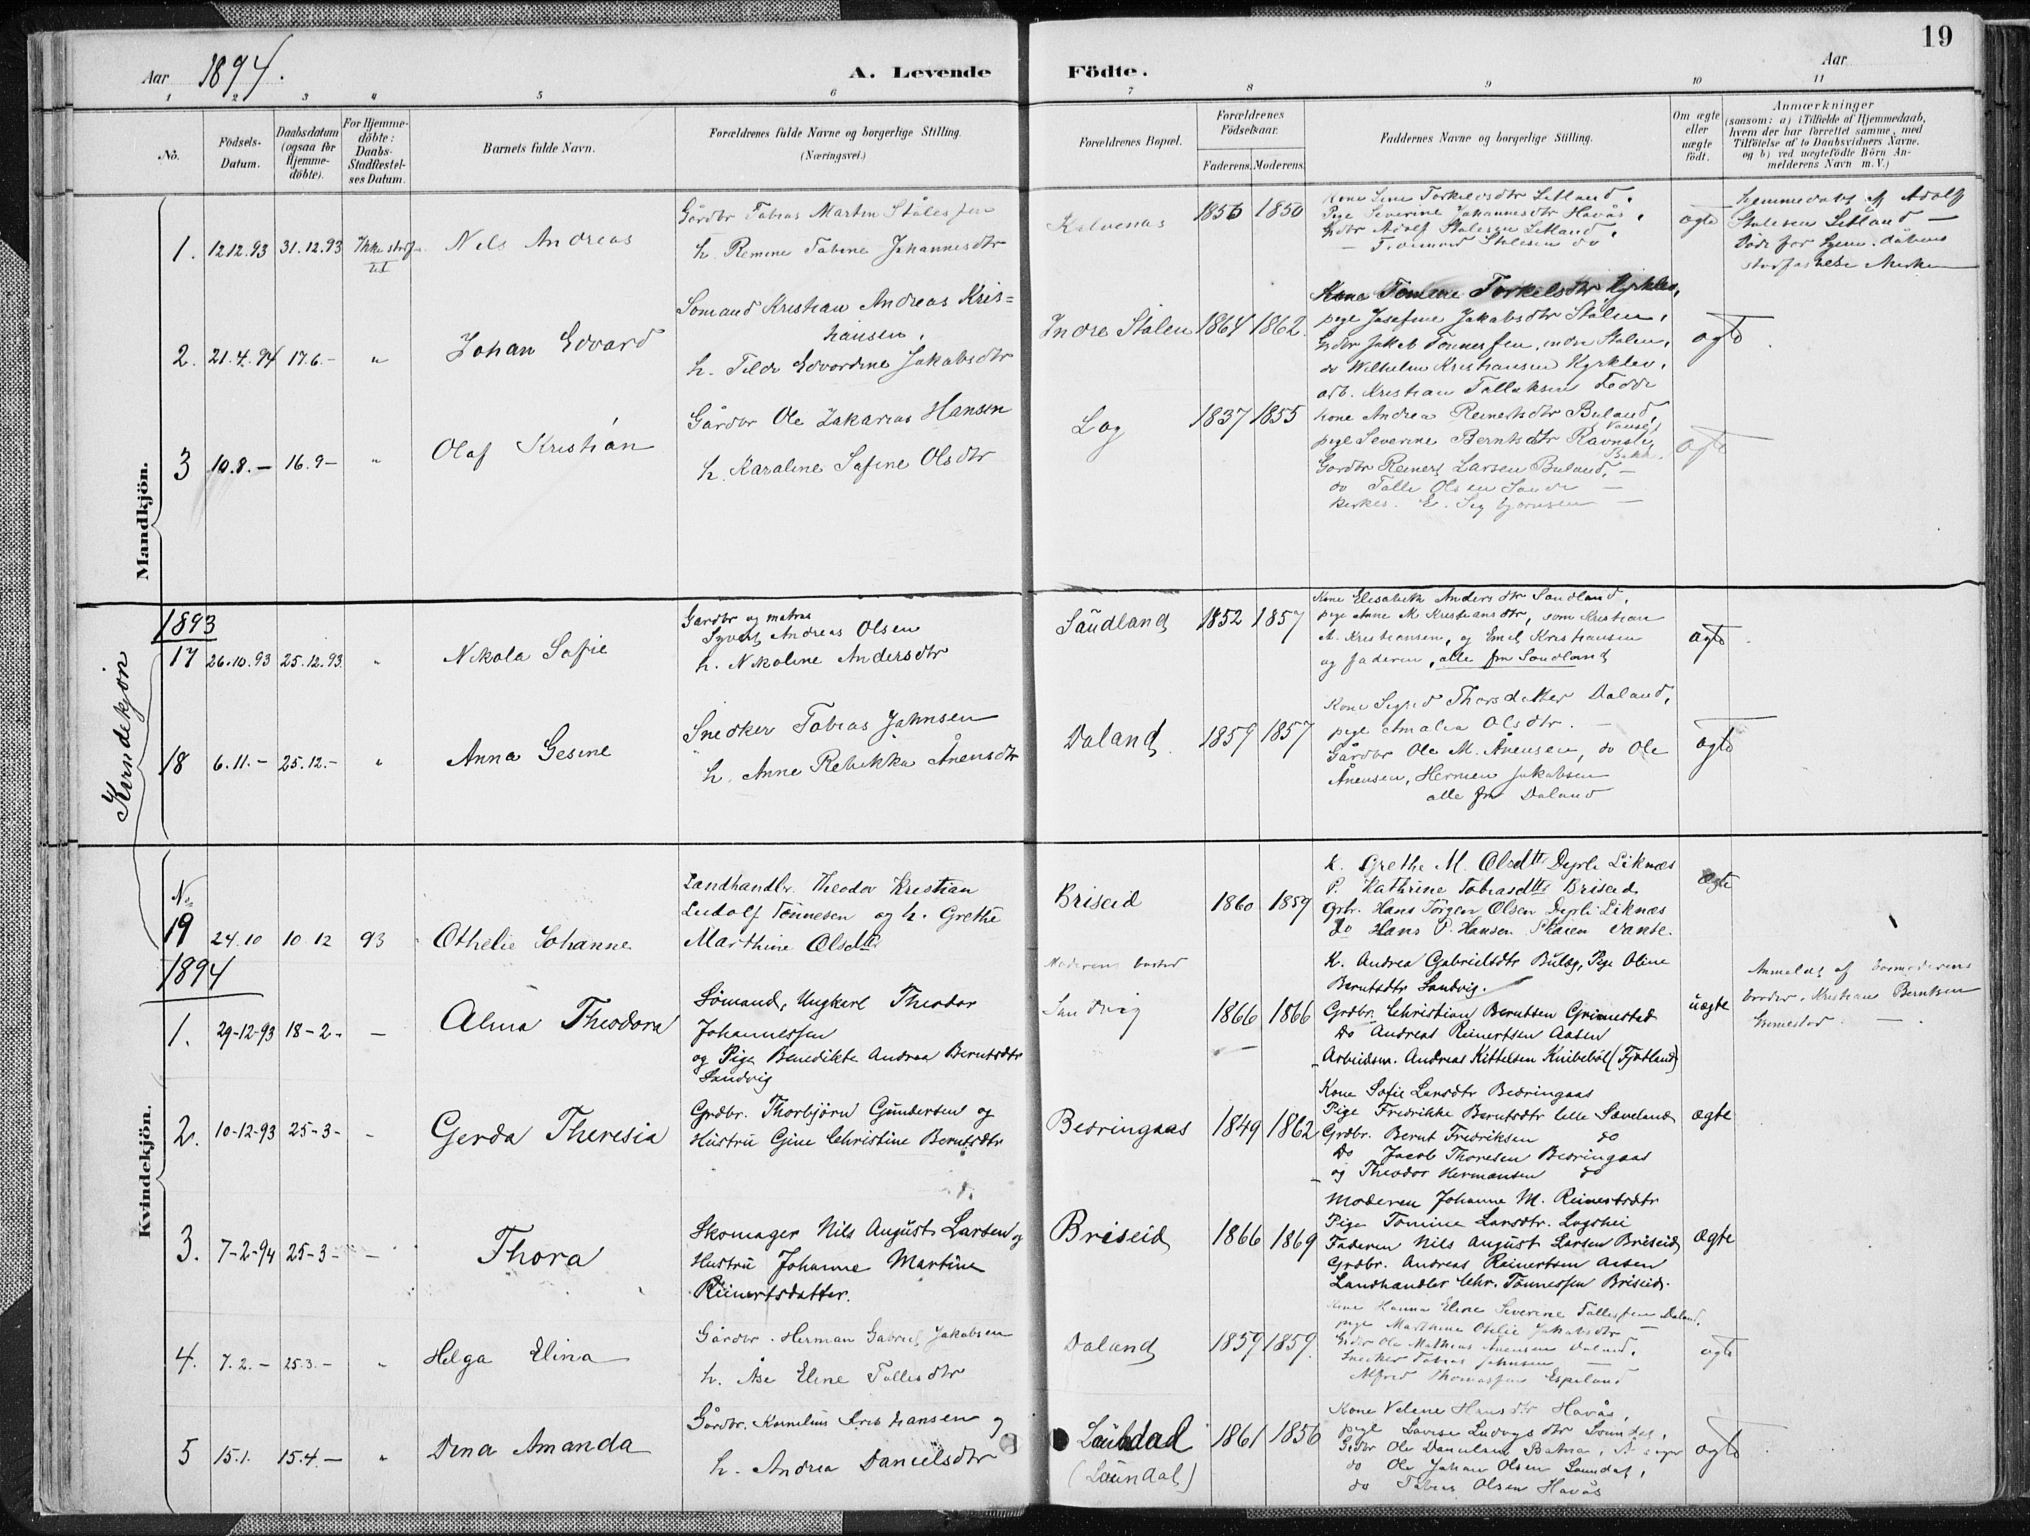 19
Aar 1894.
A. Levende Födte.
Aar
1 2 3 4 5 6 7 8 9 10 11
No.
Födsels-Datum.
Daabsdatum (ogsaa for Hjemme-döbte).
For Hjemme-döbte: Daabs-Stadfæstel-ses Datum.
Barnets fulde Navn.
Forældrenes fulde Navne og borgerlige Stilling.
(Næringsvei.)
Forældrenes Bopæl.
Forældrenes Födselsaar.
Faderens. Moderens.
Faddernes Navne og borgerlige Stilling.
Om ægte eller uægte födt.
Anmærkninger
(saasom: a) i Tilfælde af Hjemmedaab, hvem der har forrettet samme, med Tilföielse af to Daabsvidners Navne. og b) ved uægtefödte Börn An-melderens Navn m. V.)
Mandkjön.
1. 12.12.93 31.12.93 Nils Andreas
Gårdbr Tobias Martin Stålesen
h. Remine Tobine Johannesdtr
1856 1850
Pige Severine Johannesdtr Havås,
Gdbr Adolf Stalesen
ægte
2. 21.4.94 17.6.- " Johan Edvard
Sömand Kristian Andreas Kris=
tiansen,
h. Tilde Edvardine Jakobsdtr
Indre Stålen 1864 1862.
Kone Tomine Torkelsdtr Kyrklev,
pige Josefine Jakobsdtr Stålen,
Gdbr Jakob Tønnessen, indre Stålen,
do Wilhelm Kristiansen Kyrklev,
arb. Kristian Tallaksen Fedde
ægte
3 10.8.- 16.9- " Olaf Kristian
Gårdbr Ole Zakarias Hansen
h. Karaline Sofine Olsdtr
Log 1837 1855
kone Andrea Reinertsdtr Buland,
pige Severine Berntsdtr Ravnsli
Gårdbr Reinert Larsen Buland, -
do Talle Olsen Sande -
ægte
Kvindekjön
1893
17 26.10.93 25.12.93. " Nikola Sofie
Gardbr og matros
Syvert Andreas Olsen
h. Nikoline Andersdtr
Sàudland 1852 1857
Kone Elisabeth Andersdtr Saudland,
pige Anne M Kristiansdtr, søm Kristian
A. Kristiansen, og Emil Kristiansen
og faderen, alle fra Saudland
ægte
18 6.11.- 25.12.- " Anna Gesine
Snedker Tobias Jahnsen
h. Anne Rebekka Ånensdtr
Daland 1859 1857
Kone Sigrid Thorsdatter Daland,
pige Amalia Olsdtr. -
Gårdbr Ole M. Ånensen, do Ole
Ånensen, Herman Jakobsen
alle fra Daland
ægte
Kvindekjön.
No
19 24.10 10 12 93 Othelie Johanne
Landhandlr. Theodor Kristian
Ludolf Tönnesen og h. Grethe
Marthine Olsdtr
Briseid 1860 1859
K. Grethe M. Olsdtr Dyrli Liknæs
P. Kathrine Tobiasdtr Briseid
Grbr. Hans Jörgen Olsen Dyrli Liknæs
Do Hans P. Hansen Skaien Vanse.
ægte
1894
1. 29-12-93 18-2- - Alma Theodora
Sömand, Ungkarl Theodor
Johannessen
og Pige Benedikte Andrea Berntsdtr
Sandvig
Moderens bosted
Sandvig 1866 1866
K. Andrea Gabrielsdtr Buløg, Pige Oline
Berntsdtr Sandvig.
Grdbr. Christian Berntsen Grimestad
Do Andreas Reinertsen Aasen
Arbeidsm. Andreas Kittelsen Knibeböl (Fjotland)
uægte
Anmeldt af barnmoderens
broder, Kristian Berntsen
Grimestad. -
2. 10-12-93 25-3- - Gerda Theresia
Grdbr. Thorbjörn Gundersen og
Hustru Gine Christine Berntsdtr
Bedringaas 1849 1862
Kone Sofie Larsdtr Bedringaas
Pige Fredrikke Berntsdtr lille Sæveland
Grdbr. Bernt Fredriksen do
Do Jacob Thoresen Bedringaas
og Theodor Hermansen do
ægte
3. 7-2-94 25-3- - Thora
Skomager Nils August Larsen og
Hustru Johanne Martine
Reinertsdatter.
Briseid 1866 1869
Moderen Johanne M. Reinertsdtr
Pige Tomine Larsdtr. Logshei
Faderen Nils August Larsen Briseid
Grdbr. Andreas Reinertsen Aasen
Landhandler Chr. Tönnessen Briseid.
ægte
4. 7.2.- 25.3.- " Helga Elina
Gårdbr. Herman Gabriel Jakobsen
h. Åse Eline Tallesdtr
Daland 1859 1859.
Kone Hanna Eline Severine Tallessen Daland,
pige Marthine Otilie Jakobsdtr -
Gdbr Ole Mathias Ånensen Daland,
Snedker Tobias Jahnsen -
Alfred Thomassen Espeland
ægte
5 15.1. 15.4- " Dina Amanda
Gårdbr. Kornelius Kristiansen og
h. Andrea Danielsdtr
Laùndal
(Laùndal) 1861 1856
Kone Velene Hansdtr Havås,
pige Lovise Ludvigsdtr Laundal,
Gdbr Ole Danielsen
do Ole Johan Olsen Laundal,
do Tobias Olsen Havås
ægte